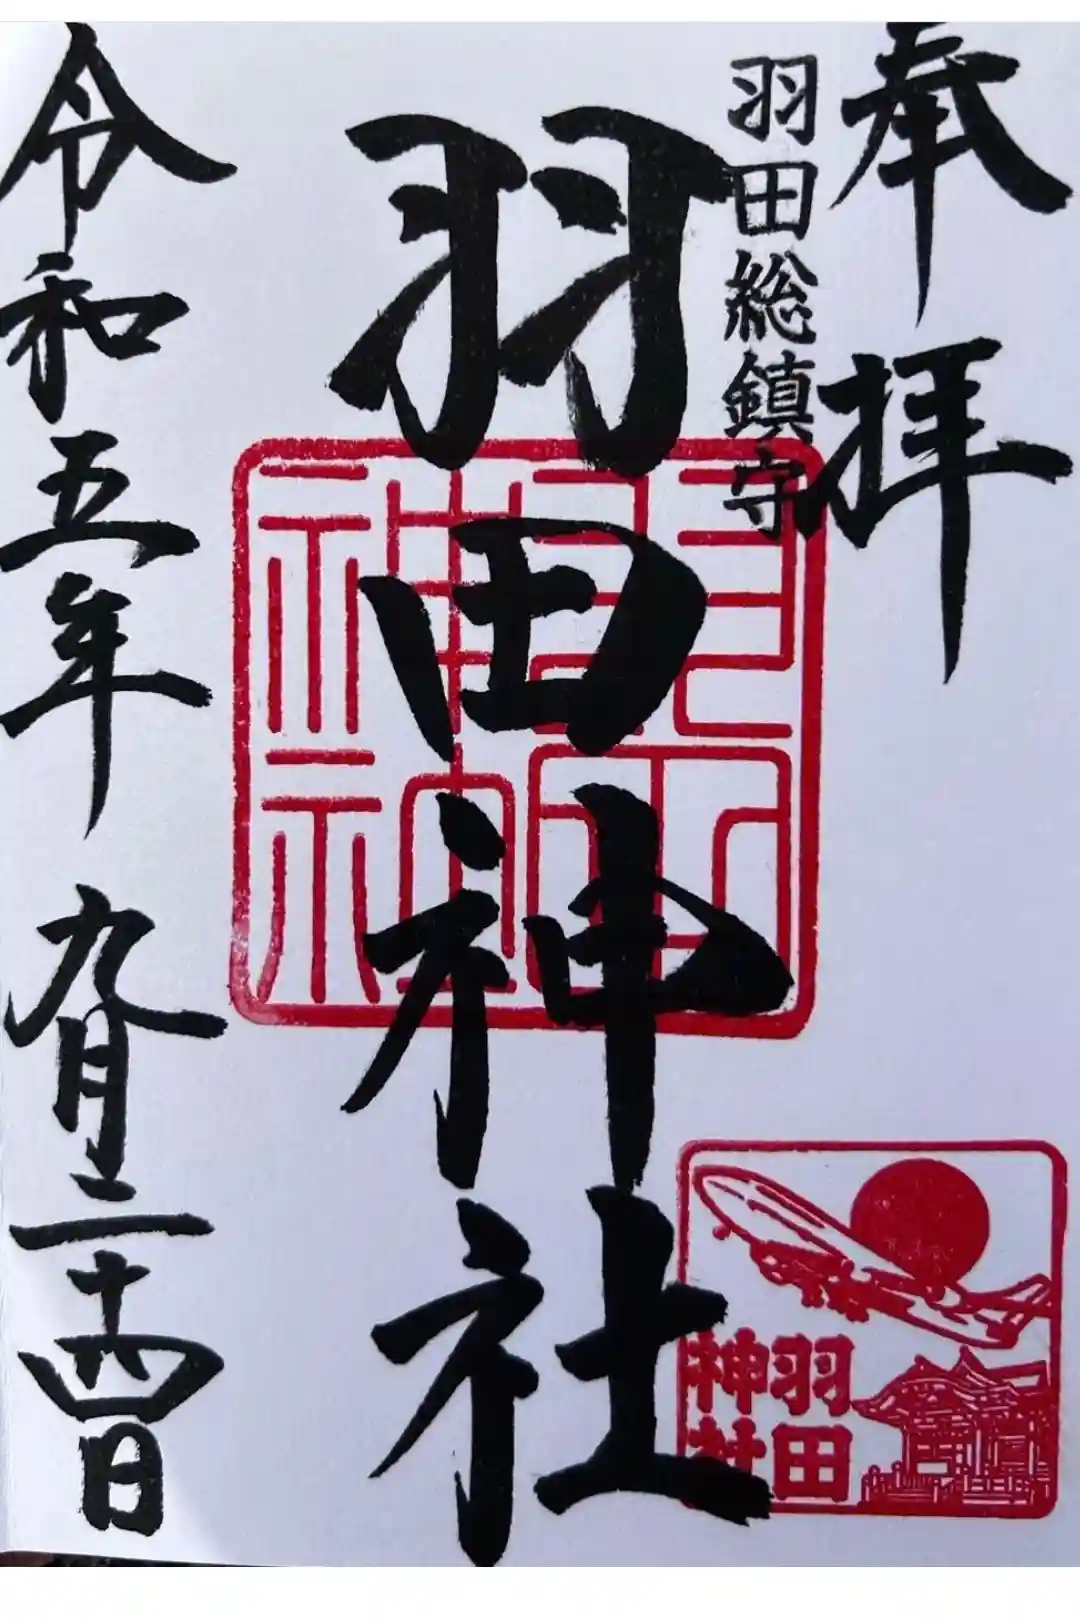 奉拝
羽田総鎮守
羽田神社
令和五年九月二十四日
羽田神社
羽田神社